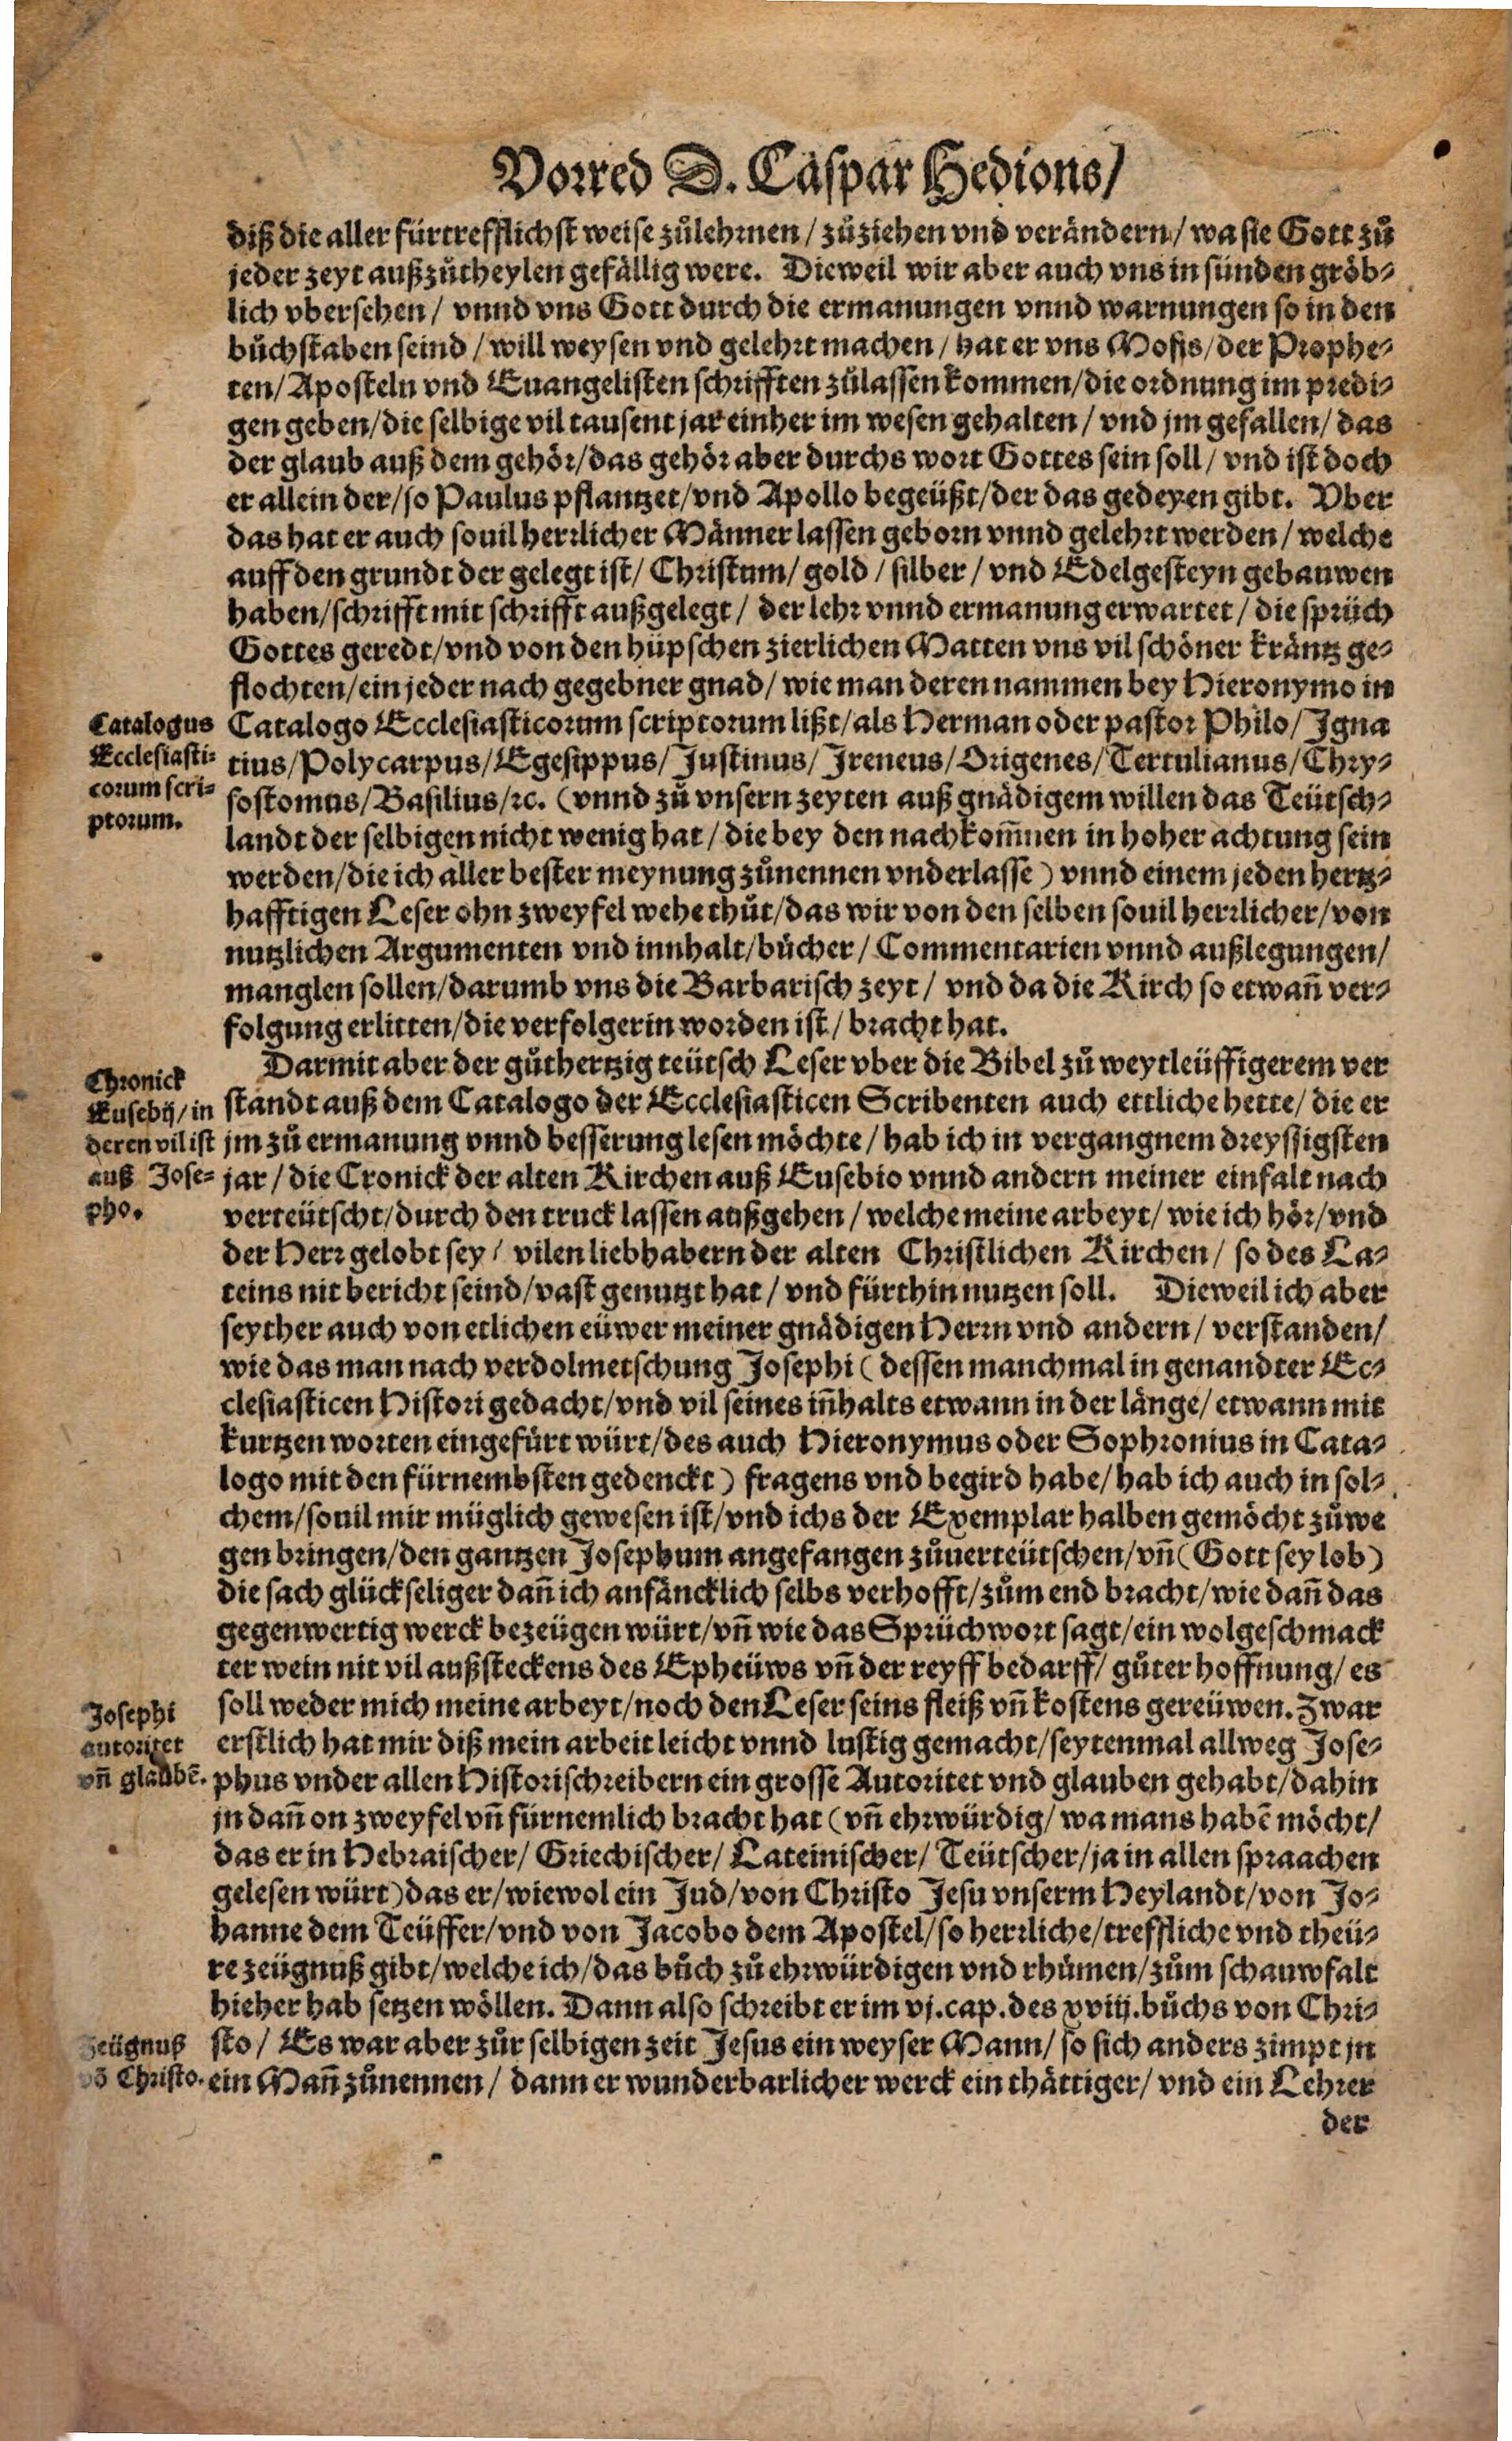 Vorred D. Caspar Hedions/
diß die aller fürtrefflichst weise zůlehrnen/ zůziehen vnd verändern/ wa sie Gott zů
jeder zeyt außzůtheylen gefällig were. Dieweil wir aber auch vns in sünden gröb-
lich vbersehen/ vnnd vns Gott durch die ermanungen vnnd warnungen so in den
bůchstaben seind/ will weysen vnd gelehrt machen/ hat er vns Mosis/ der Prophe-
ten/ Aposteln vnd Euangelisten schrifften zůlassen kommen/ die ordnung im predi-
gen geben/ die selbige vil tausent jar einher im wesen gehalten/ vnd jm gefallen/ das
der glaub auß dem gehör/ das gehör aber durchs wort Gottes sein soll/ vnd ist doch
er allein der/ so Paulus pflantzet/ vnd Apollo begeüßt/ der das gedeyen gibt. Vber
das hat er auch souil herrlicher Männer lassen geborn vnnd gelehrt werden/ welche
auff den grundt der gelegt ist/ Christum/ gold/ silber/ vnd Edelgesteyn gebauwen
haben/ schrifft mit schrifft außgelegt/ der lehr vnnd ermanung erwartet/ die sprüch
Gottes geredt/ vnd von den hüpschen zierlichen Matten vns vil schöner kräntz ge-
flochten/ ein jeder nach gegebner gnad/ wie man deren nammen bey Hieronymo in
Catalogus
Ecclesiasti-
corum scri-
ptorum.
Catalogo Ecclesiasticorum scriptorum lißt/ als Herman oder pastor Philo/ Igna
tius/ Polycarpus/ Egesippus/ Justinus/ Ireneus/ Origenes/ Tertulianus/ Chry-
sostomus/ Basilius/ ꝛc. (vnnd zů vnsern zeyten auß gnädigem willen das Teütsch-
landt der selbigen nicht wenig hat/ die bey den nachkom̃nen in hoher achtung sein
werden/ die ich aller bester meynung zůnennen vnderlasse) vnnd einem jeden hertz-
hafftigen Leser ohn zweyfel wehe thůt/ das wir von den selben souil herrlicher/ von
nutzlichen Argumenten vnd innhalt/ bůcher/ Commentarien vnnd außlegungen/
manglen sollen/ darumb vns die Barbarisch zeyt/ vnd da die Kirch so etwañ ver-
folgung erlitten/ die verfolgerin worden ist/ bracht hat.
Chronick
Eusebij/ in
deren vil ist
auß Jose-
pho.
Darmit aber der gůthertzig teütsch Leser vber die Bibel zů weytleüffigerem ver
standt auß dem Catalogo der Ecclesiasticen Scribenten auch ettliche hette/ die er
jm zů ermanung vnnd besserung lesen möchte/ hab ich in vergangnem dreyssigsten
jar/ die Cronick der alten Kirchen auß Eusebio vnnd andern meiner einfalt nach
verteütscht/ durch den truck lassen außgehen/ welche meine arbeyt/ wie ich hör/ vnd
der Herr gelobt sey/ vilen liebhabern der alten Christlichen Kirchen/ so des La-
teins nit bericht seind/ vast genutzt hat/ vnd fürthin nutzen soll. Dieweil ich aber
seyther auch von etlichen eüwer meiner gnädigen Herrn vnd andern/ verstanden/
wie das man nach verdolmetschung Josephi (dessen manchmal in genandter Ec-
clesiasticen Histori gedacht/ vnd vil seines iñhalts etwann in der länge/ etwann mit
kurtzen worten eingefürt würt/ des auch Hieronymus oder Sophronius in Cata-
logo mit den fürnembsten gedenckt) fragens vnd begird habe/ hab ich auch in sol-
chem/ souil mir müglich gewesen ist/ vnd ichs der Exemplar halben gemöcht zůwe
gen bringen/ den gantzen Josephum angefangen zůuerteütschen/ vñ (Gott sey lob)
die sach glückseliger dañ ich anfäncklich selbs verhofft/ zům end bracht/ wie dañ das
gegenwertig werck bezeügen würt/ vñ wie das Sprüchwort sagt/ ein wolgeschmack
ter wein nit vil außsteckens des Epheüws vñ der reyff bedarff/ gůter hoffnung/ es
soll weder mich meine arbeyt/ noch den Leser seins fleiß vñ kostens gereüwen. Zwar
Josephi
autoritet
vñ glaubẽ.
erstlich hat mir diß mein arbeit leicht vnnd lustig gemacht/ seytenmal allweg Jose-
phus vnder allen Historischreibern ein grosse Autoritet vnd glauben gehabt/ dahin
jn dañ on zweyfel vñ fürnemlich bracht hat (vñ ehrwürdig/ wa mans habẽ möcht/
das er in Hebraischer/ Griechischer/ Lateinischer/ Teütscher/ ja in allen spraachen
gelesen würt) das er/ wiewol ein Jud/ von Christo Jesu vnserm Heylandt/ von Jo-
hanne dem Teüffer/ vnd von Jacobo dem Apostel/ so herrliche/ treffliche vnd theü-
re zeügnuß gibt/ welche ich/ das bůch zů ehrwürdigen vnd rhůmen/ zům schauwfalt
hieher hab setzen wöllen. Dann also schreibt er im vj. cap. des xviij. bůchs von Chri-
Zeügnuß
võ Christo.
sto/ Es war aber zůr selbigen zeit Jesus ein weyser Mann/ so sich anders zimpt jn
ein Mañ zůnennen/ dann er wunderbarlicher werck ein thättiger/ vnd ein Lehrer
der